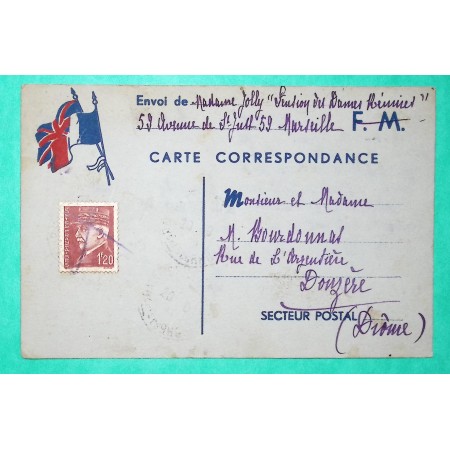 Envoi de Madame Jolly "Pension des Dames Réunies"
59 Avenue de St Just 59 Marseille F. M.
CARTE CORRESPONDANCE
Monsieur et Madame
M. Bourdonnas
Rue de L'Argentière
Donzère
SECTEUR POSTAL
(Drôme)
1f20